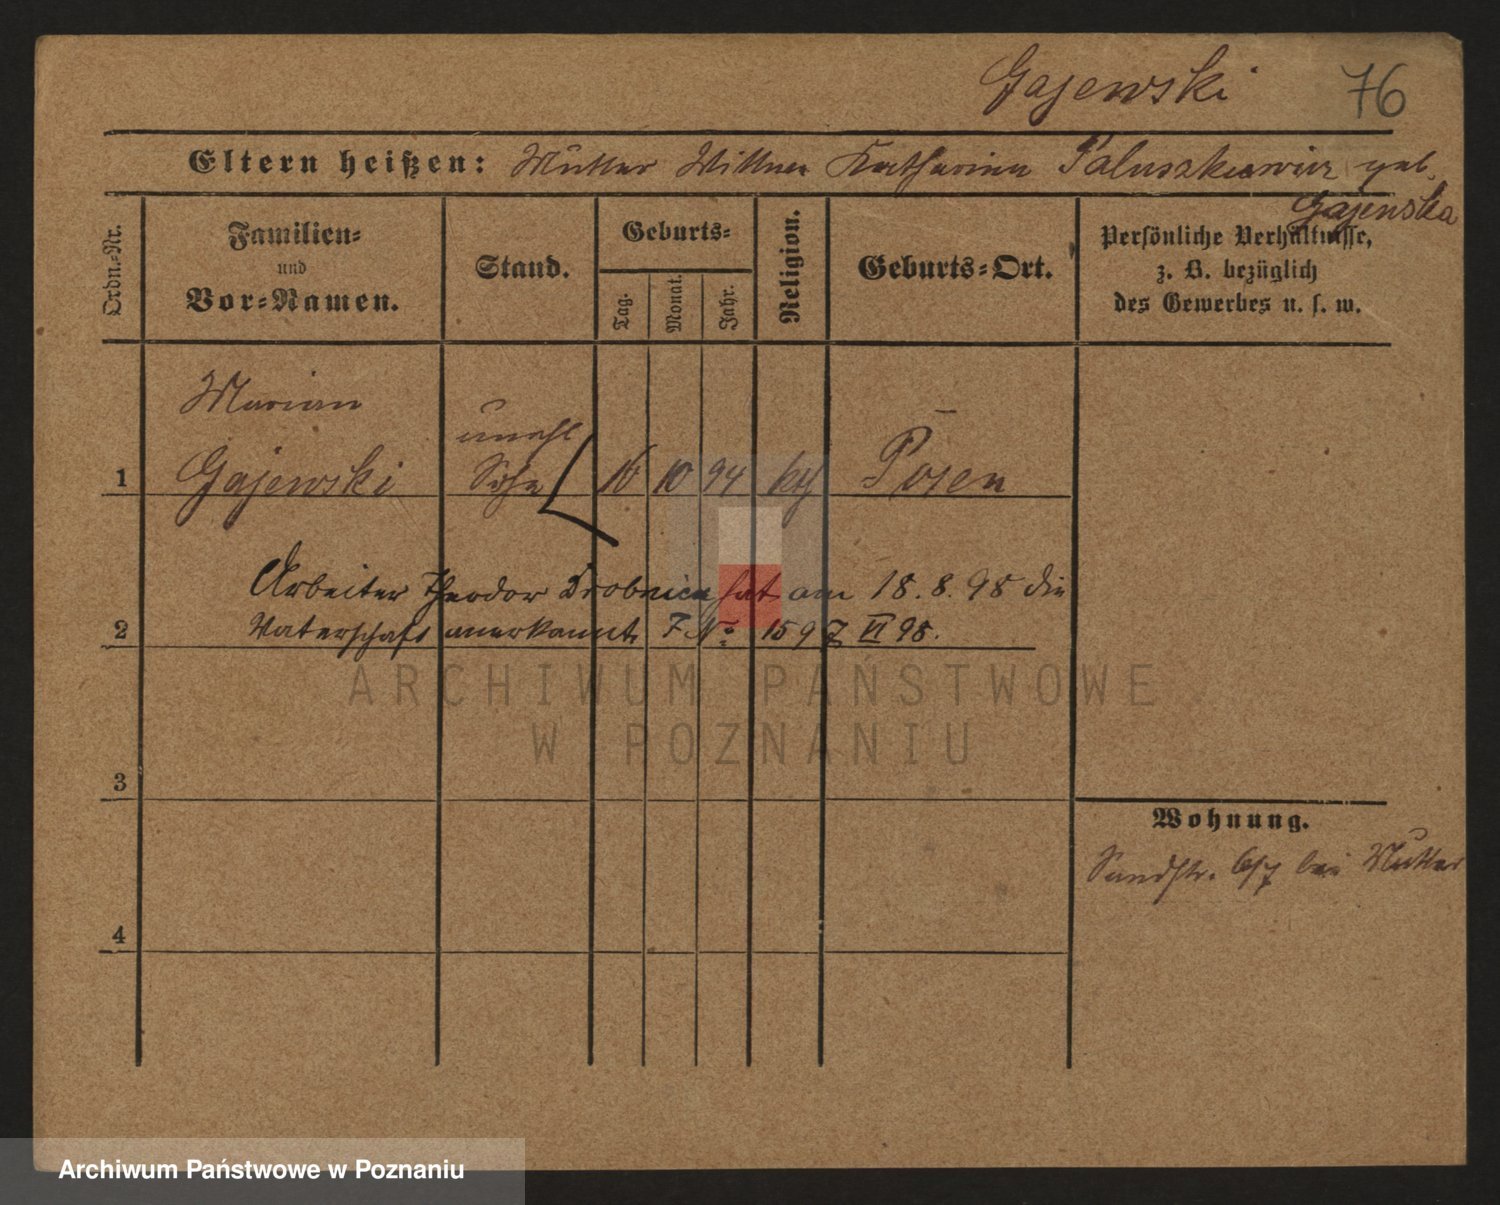 Gajewski 76
Eltern heißen: Mutter Wittwe Katharina Paluszkiewicz geb.
Gajewska
Ordn.-Nr.
Familien-
und
Vor-Namen.
Stand.
Geburts-
Tag.
Monat.
Jahr.
Religion.
Geburts-Ort.
Persönliche Verhältnisse,
z. B. bezüglich
des Gewerbes u. s. w.
Marian
unehl
1 Gajewski Sohn 16 10 94 kth Posen
Arbeiter Theodor hat am 18. 8. 98 die
2 Vaterschaft anerkannt. F No 1597 VI 98.
ARCHIWUM PAŃSTWOWE
W POZNANIU
3
Wohnung.
Sandstr. 6/7 bei Mutter
4
Archiwum Państwowe w Poznaniu